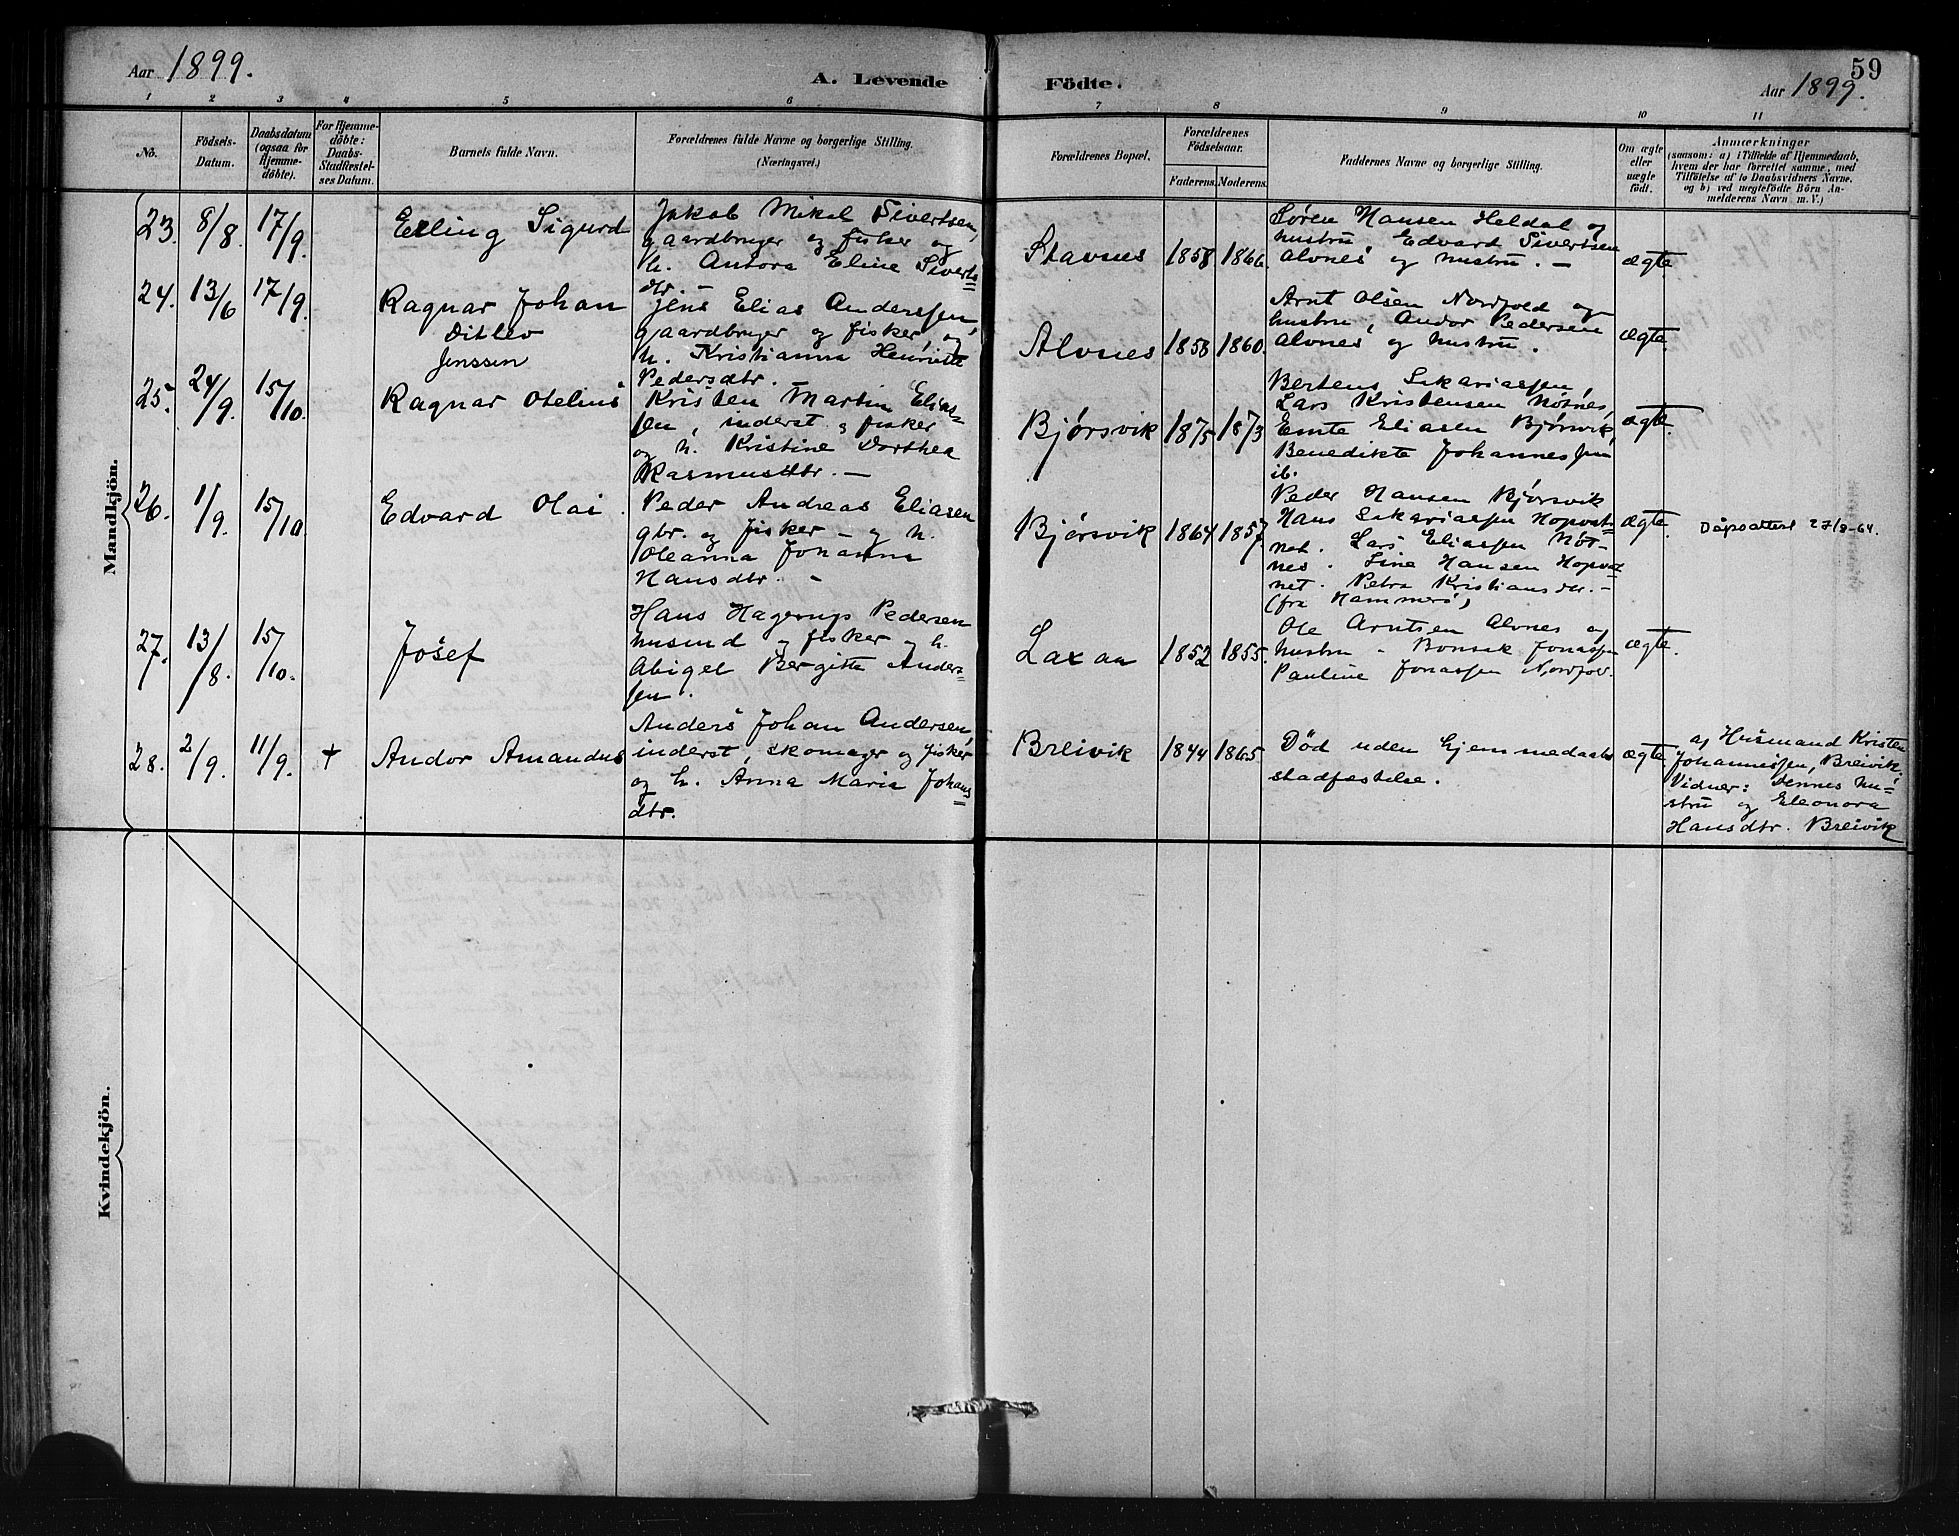 Aar 1899.
A. Levende Födte.
59
Aar 1899.
1 2 3 4 5 6 7 8 9 10 11
No.
Födsels-
Datum.
Daabsdatum
(ogsaa for
Hjemme-
döbte).
For Hjemme-
döbte:
Daabs-
Stadfæstel-
ses Datum.
Barnets fulde Navn.
Forældrenes fulde Navne og borgerlige Stilling.
(Næringsvei.)
Forældrenes Bopæl.
Forældrenes
Födselsaar.
Faderens. Moderens.
Faddernes Navne og borgerlige Stilling.
Om ægte
eller
uægte
födt.
Anmærkninger
(saasom: a) i Tilfælde af Hjemmedaab,
hvem der har forrettet samme, med
Tilföielse af to Daabsvidners Navne.
og b) ved uegtefödte Börn An-
melderens Navn m. V.)
Mandkjön.
23. 8/8 17/9. Erling Sigurd
Jakob Mikal Sivertsen,
gaardbruger og fisker og
h. Antora Eline Siverts=
dtr. -
Stavnes 1858 1866.
Søren Hansen Heldal og
hustru, Edvard Sivertsen
Alvnes og hustru. -
ægte
24. 13/6 17/9. Ragnar Johan
Ditlev
Jenssen
Jens Elias Anderssen,
gaardbruger og fisker, og
h. Kristianna Henriette
Pedersdtr.
Alvnes 1858 1860.
Arnt Olsen Nordfold og
hustru, Andor Pedersen
Alvnes og hustru.
ægte
25. 24/9. 15/10. Ragnar Otelius
Kristen Martin Elias=
sen, inderst og fisker
og h. Kristine Dorthea
Rasmusdtr. -
Bjørsvik 1875 1873
Bertens Sakariassen,
Lars Kristensen Nøtnes,
Emte Eliasen Bjørsvik,
Benedikte Johannessen
ib.
ægte.
26. 1/9. 15/10 Edvard Olai.
Peder Andreas Eliasen
gbr. og fisker - og h.
Oleanna Johanna
Hansdtr. -
Bjørsvik 1864 1857.
Peder Hansen Bjørsvik
Hans Sakariassen Hopvat=
net. Lars Eliassen Nøt-
nes. Line Hansen Hopvat=
net. Petra Kristiansdtr. -
(fra Hammerø)
ægte.
Dåpsattest 27/8-64.
27. 13/8. 15/10. Josef
Hans Hagerup Pedersen
husmd og fisker og h.
Abigel Bergitte Anders=
sen.
Laxaa 1852 1855.
Ole Arntsen Alvnes og
hustru - Jonassen
Pauline Jonassen Nordfol.
ægte.
28. 2/9. 11/9. + Andor Amandus
Anders Johan Andersen,
inderst, skomager og fisker
og h. Anna Maria Johans=
dtr.
Breivik 1844 1865.
Død uden hjemmedaabs
stadfæstelse.
ægte
af Husmand Kristen
Johannessen, Breivik.
Vidner: dennes hu=
stru og Eleonora
Hansdtr. Breivik
Kvindekjön.